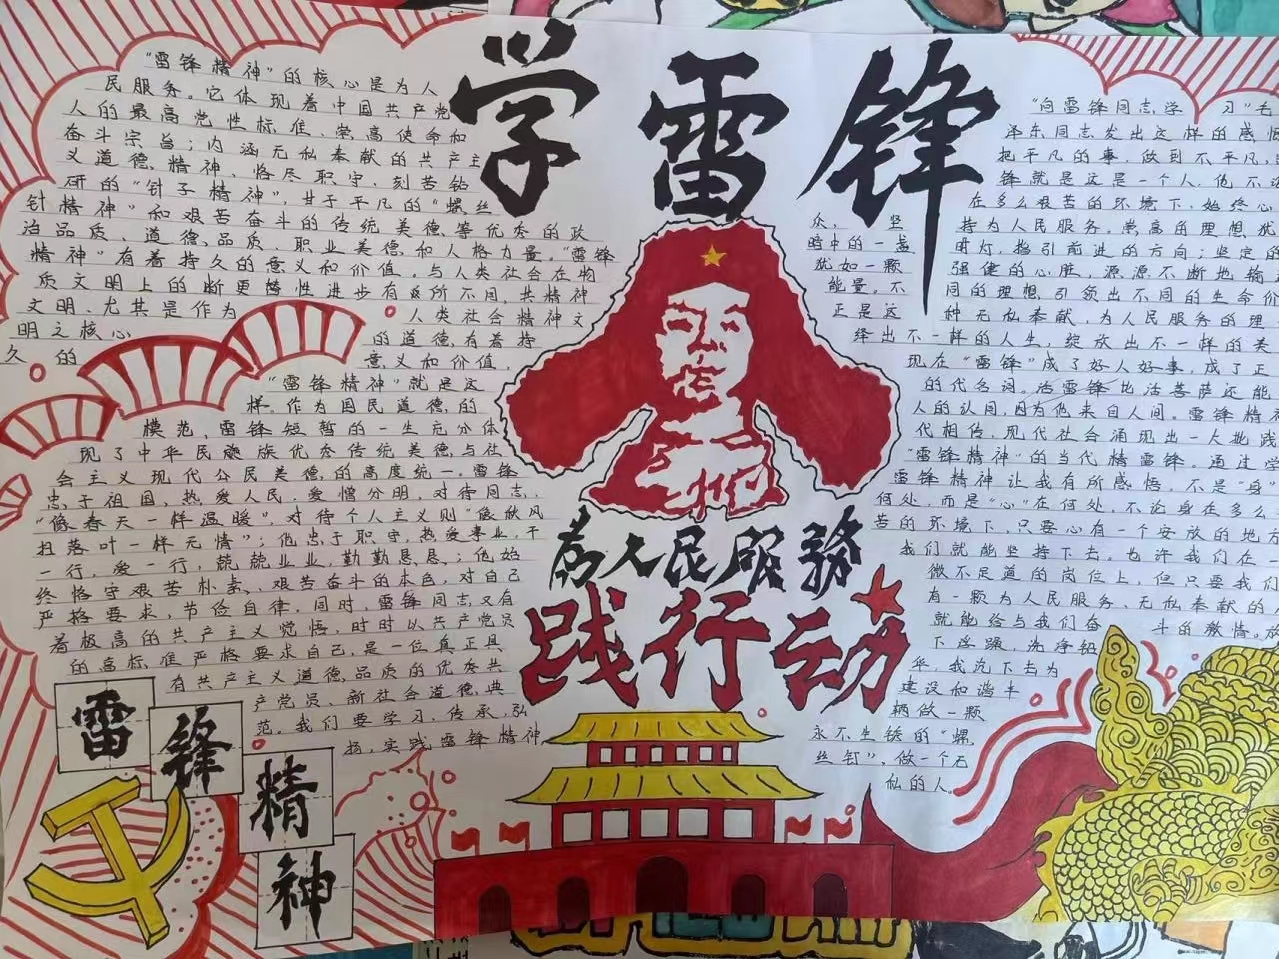 学雷锋
“雷锋精神”的核心是为人
民服务。它体现着中国共产党
人的最高党性标准、崇高使命和
奋斗宗旨；内涵无私奉献的共产主
义道德、精神、恪尽职守、刻苦钻
研的“钉子精神”，甘于平凡的“螺丝
针精神”和艰苦奋斗的传统美德、等优秀的政
治品质、道德、品质、职业美德、和人格力量。“雷锋
精神”有着持久的意义和价值，与人类社会在物
质文明上的断更嬗性进步有所不同，共精神
文明、尤其是作为
人类社会精神文
明之核心
的道德，有着持
久的
意义和价值，
“雷锋精神”就是这
样。作为国民道德的
模范，雷锋短暂的一生充分体
现了中华民族优秀传统美德与社
会主义现代公民美德，的高度统一。雷锋
忠于祖国，热爱人民，爱憎分明，对待同志，
“像春天一样温暖”，对待个人主义则“像秋风
扫落叶一样无情”；他忠于职守，热爱事业，干
一行，爱一行，兢兢业业，勤勤恳恳；他始
终恪守艰苦朴素、艰苦奋斗的本色，对自己
严格要求，节俭自律，同时，雷锋同志又有
着极高的共产主义觉悟，时时以共产党员
的高标准严格要求自己，是一位真正具
有共产主义道德、品质的优秀共
产党员、新社会道德、典
范。我们要学习、传承、弘
扬，实践雷锋精神
“向雷锋同志学习”毛
泽东同志发出这样的感
把平凡的事，做到不平凡，
锋就是这是一个人，他不
在多么艰苦的环境下，始终心
众，坚持为人民服务。崇高的理想，犹
时中的一盏明灯，指引前进的方向；坚定的
犹如一颗强健的心脏，源源不断地输
能量。不同的理想，引领出不同的生命
正是这种无私奉献，为人民服务的理
绎出不一样的人生，绽放出不一样的美
现在“雷锋”成了好人好事，成了正
的代名词。活雷锋比活菩萨还能
人的认同，因为他来自人间。雷锋精
代相传，现代社会涌现出一大批践
“雷锋精神”的当代精雷锋。通过学
雷锋精神让我有所感悟，不是“身”
何处，而是“心”在何处，不论身在多么
苦的环境下，只要心有一个安放的地方
我们就能坚持下去，也许我们在一
微不足道的岗位上，但只要我们
有一颗为人民服务、无私奉献的
就能给与我们奋斗的激情。
下浮躁，洗净铅
华，我沉下去为
建设和谐丰
做一颗
永不生锈的“螺
丝钉”，做一个无
私的人。
为人民服务
践行动
雷锋精神